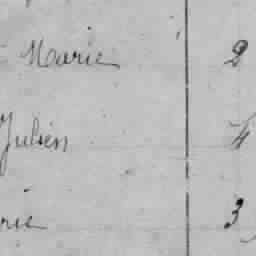 Marie 2
Julien 4
rie 3